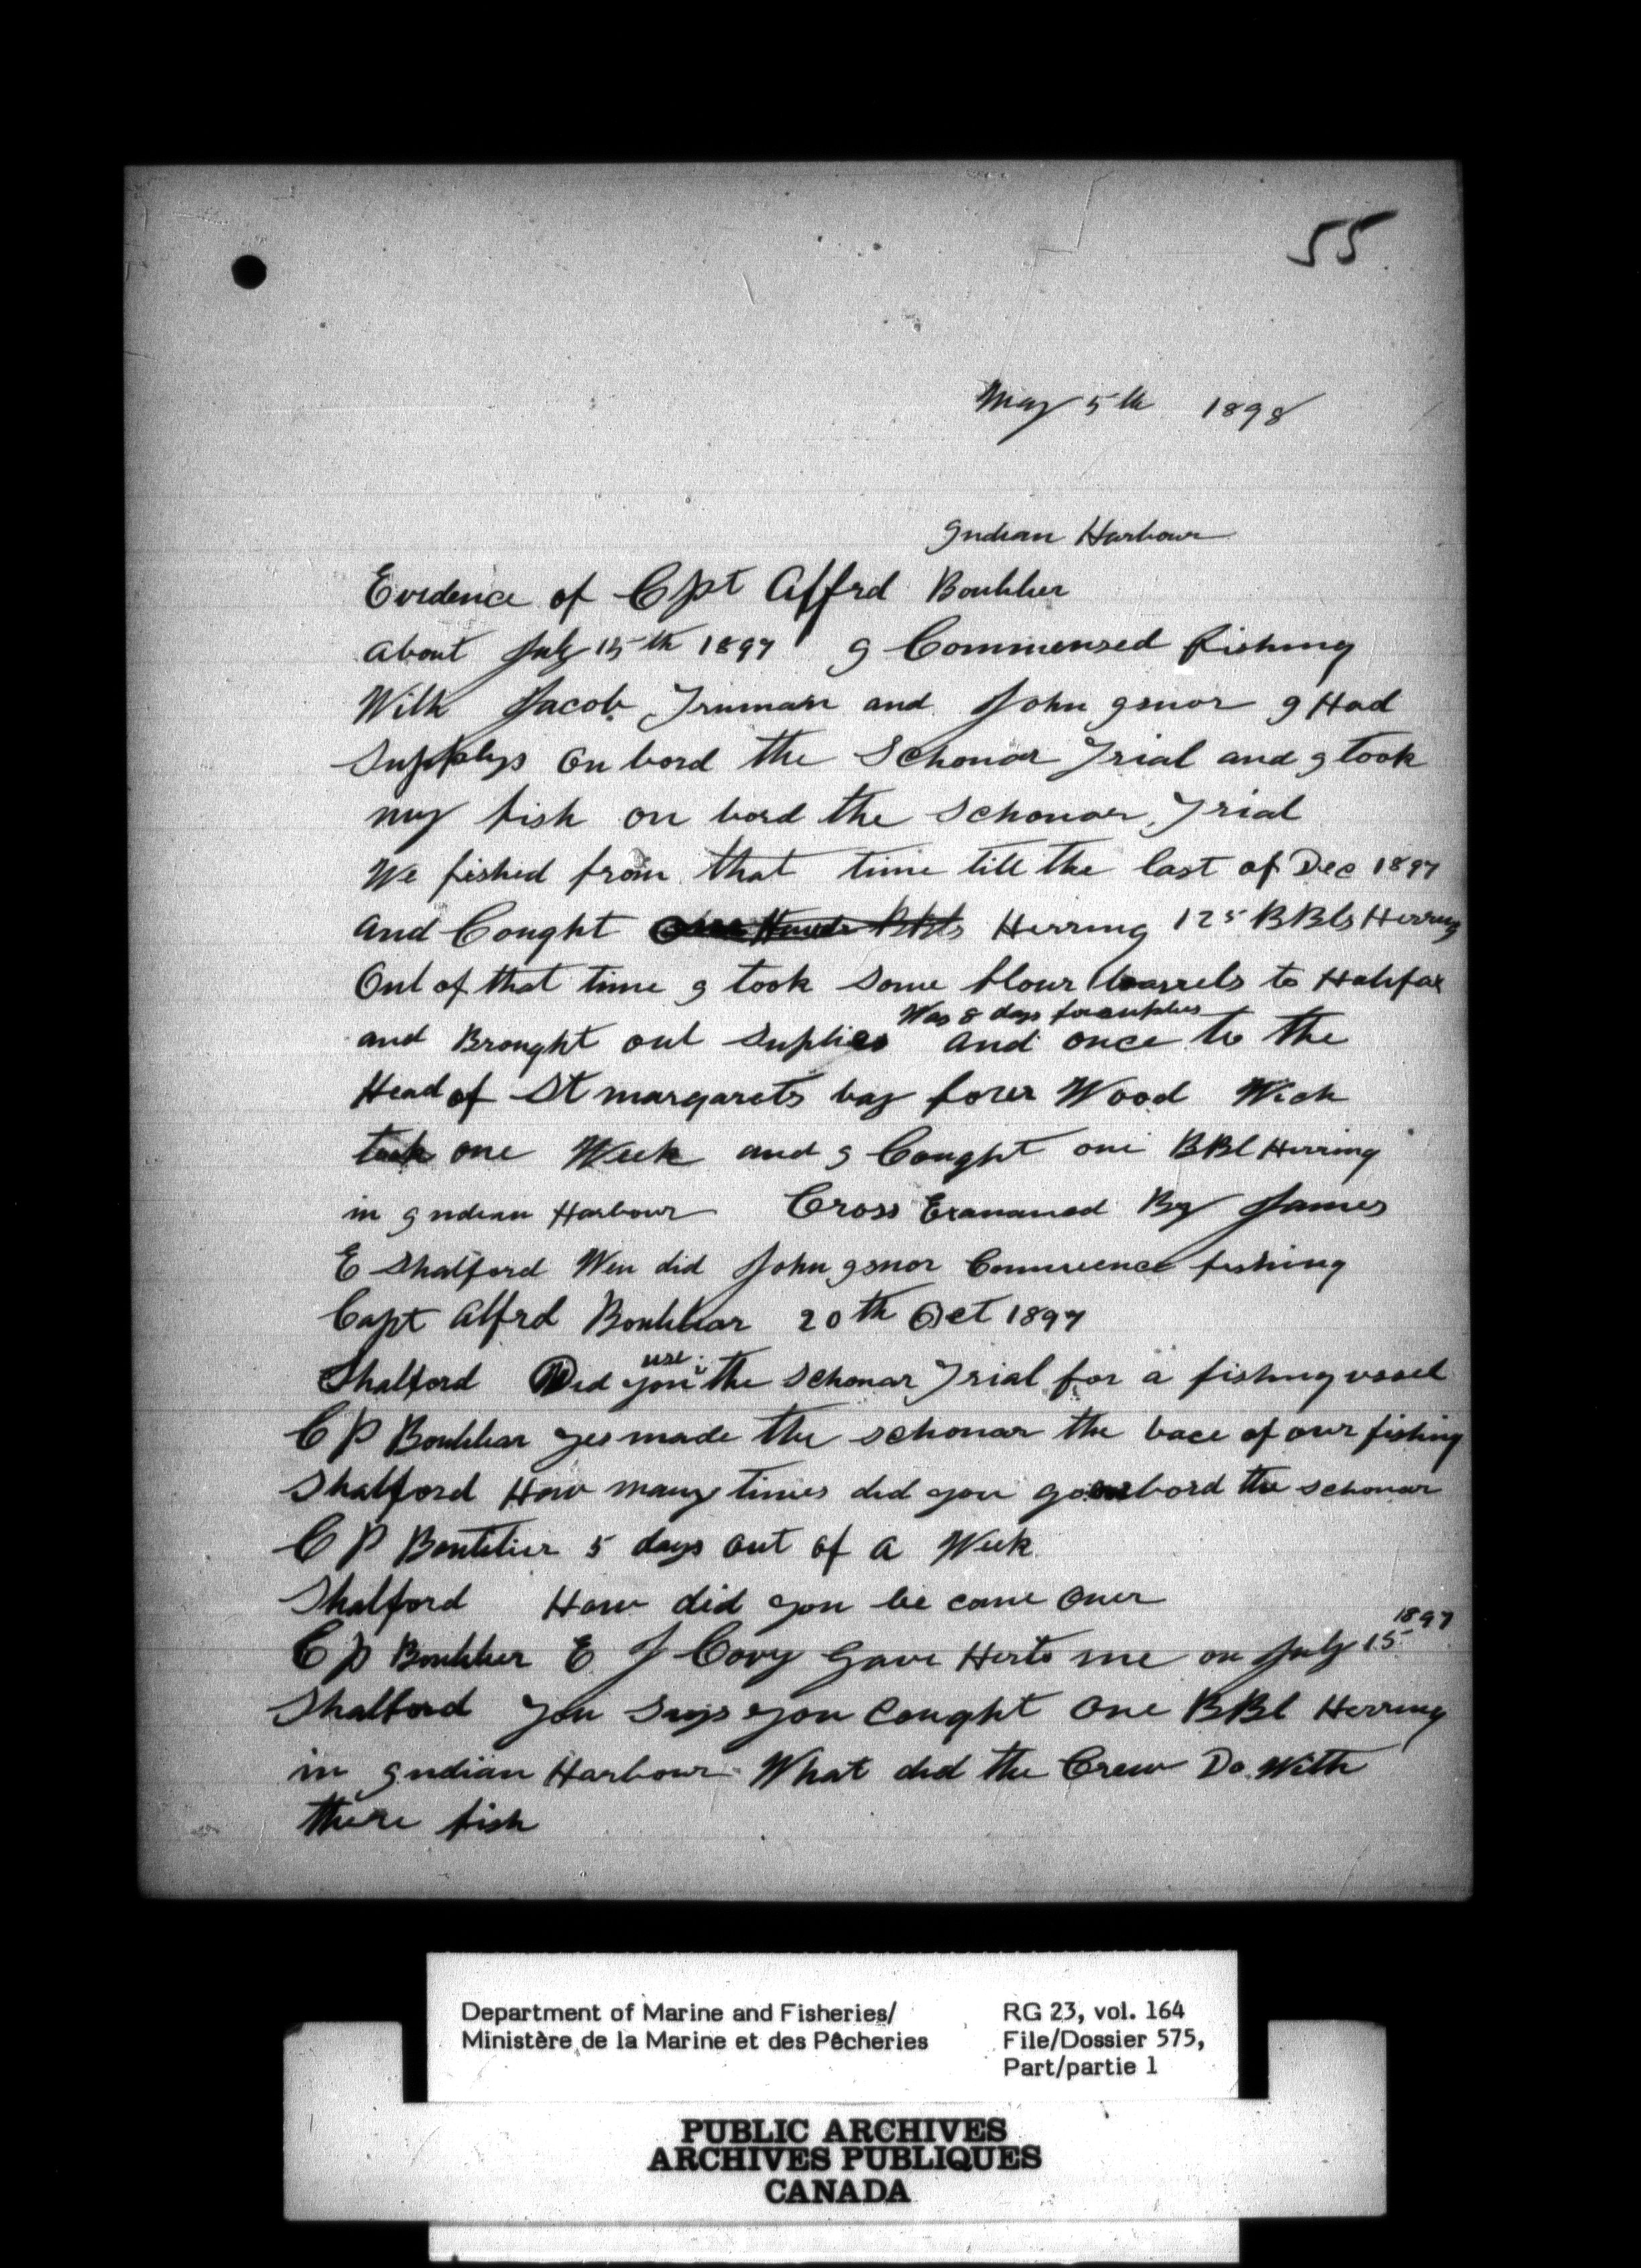 55
May 5th 1898
Indian Harbour
Evidence of Cpt Alfrd Boutilier
about July 15th 1897 I Commensed fishing
With Jacob Truman and John Isnor I Had
Supplys on bord the Schonar Trial and I took
my fish on bord the schonar Trial
We fished from that time till the last of Dec 1897
and Cought Herring 125 BBls Herring
Out of that time I took some flour barrels to Halifax
Was 8 days for suplies
and Brought out Suplies and once to the
Head of St margarets bay forer Wood Wich
took one Week and I Cought one BBl Herring
in Indian Harbour Cross Exanamed By James
E Shalford Wen did John Isnor Commence fishing
Capt Alfrd Boutiliar 20th Oct 1897
use
Shalford Did you the schonar Trial for a fishing vessel
C P Boutiliar yes made the schonar the bace of our fishing
Shalford How many times did you go on bord the schonar
C P Boutilier 5 days out of a Week
Shalford How did you be come oner
1897
C P Boutilier E J Covy Gave Her to me on July 15
Shalford you says you Cought one BBl Herring
in Indian Harbour What did the Crew Do With
there fish
Department of Marine and Fisheries/ RG 23, vol. 164
Ministère de la Marine et des Pêcheries File/Dossier 575,
Part/partie 1
PUBLIC ARCHIVES
ARCHIVES PUBLIQUES
CANADA